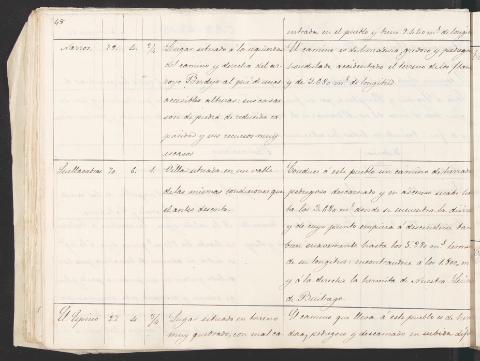 48
entrada en el pueblo y tiene 2.440 m.s de longitud
Narros. 22. 4. 3/4 Lugar situado á la izquierda
del camino y derecha del ar-
royo
accesibles alturas: sus casas
son de piedra de reducida ca-
pacidad y sus recursos muy
escasos
El camino es de herradura, gredoso y pedregoso
accidentado el terreno de los flan
y de 3.680 m.s de longitud
Suellacabras 70. 6. 1. Villa situada en un valle
de las mismas condiciones que
el antes descrito.
Conduce á este pueblo un camino de herradura
pedregoso descarnado y en ascenso suave has-
ta los 3.680 m.s donde se encuentra la divisoria
y de cuyo punto empieza á descenderse tam-
bien suavemente hasta los 5.220 m.s termino
de su longitud: encontrandose á los 1.800 m
y á la derecha la hermita de Nuestra Señora
de Buitrago.
El Espino 22. 4. 3/4 Lugar situado en terreno
muy quebrado, con mal ca-
El camino que lleva á este pueblo es de herra
dura, pedregoso y descarnado en subida